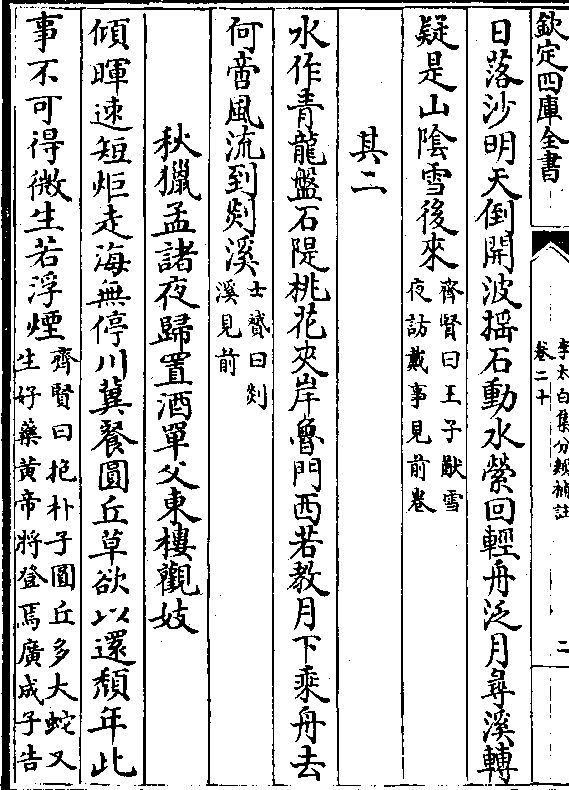 欽定四庫全書
李太白集分類補註
卷二十
二
日落沙明天倒開波揺石動水縈回輕舟泛月尋溪轉
疑是山隂雪後來
齊賢曰王子猷雪
夜訪戴事見前卷
其二
水作青龍盤石隄桃花夾岸魯門西若教月下乘舟去
何啻風流到剡溪
士贇曰剡
溪見前
秋獵孟諸夜歸置酒單父東樓觀妓
傾暉速短炬走海無停川冀餐圓丘草欲以還頽年此
事不可得微生若浮煙
齊賢曰抱朴子圓丘多大蛇又
生好藥黄帝將登焉廣成子告